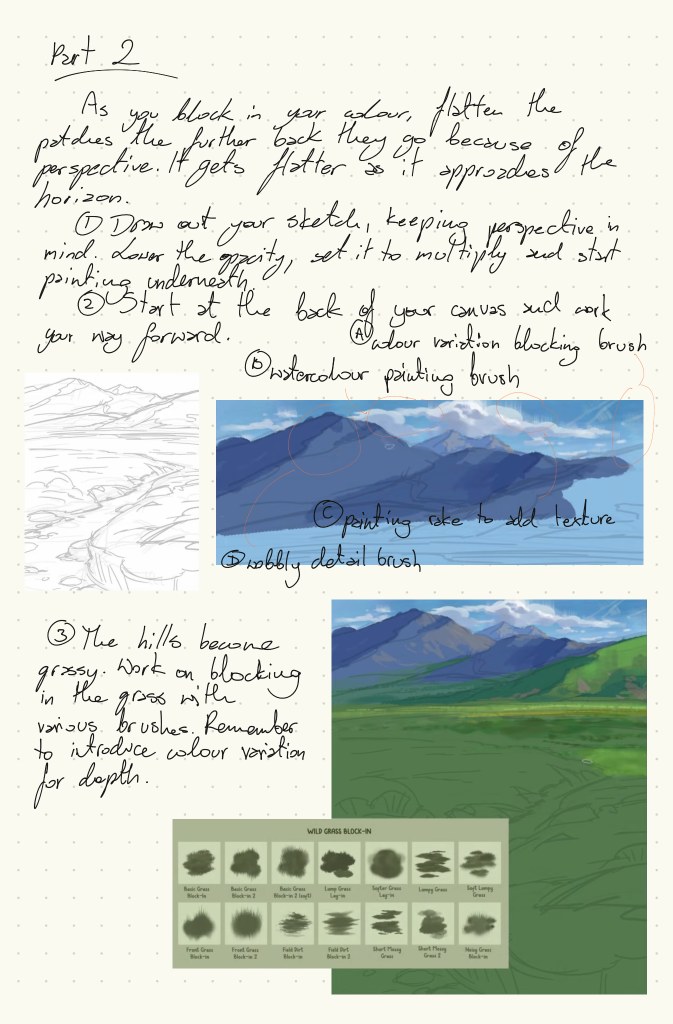 Part 2
As you block in your colour, flatten the
patches the further back they go because of
perspective. It gets flatter as it approaches the
horizon.
① Draw out your sketch, keeping perspective in
mind. Lower the opacity, set it to multiply and start
painting underneath.
② Start at the back of your canvas and work
your way forward.
Ⓐ colour variation blocking brush
Ⓑ watercolour painting brush
Ⓒ painting rake to add texture
Ⓓ wobbly detail brush
③ The hills become
grassy. Work on blocking
in the grass with
various brushes. Remember
to introduce colour variation
for depth.
WILD GRASS BLOCK-IN
Basic Grass Block-in
Basic Grass Block-in 2
Basic Grass Block-in 2 (soft)
Lump Grass Lay-in
Lumpy Grass
Soft Lumpy Grass
Front Grass Block-in
Front Grass Block-in 2
Field Dirt Block-in
Field Dirt Block-in 2
Short Messy Grass
Short Messy Grass 2
Messy Grass Block-in